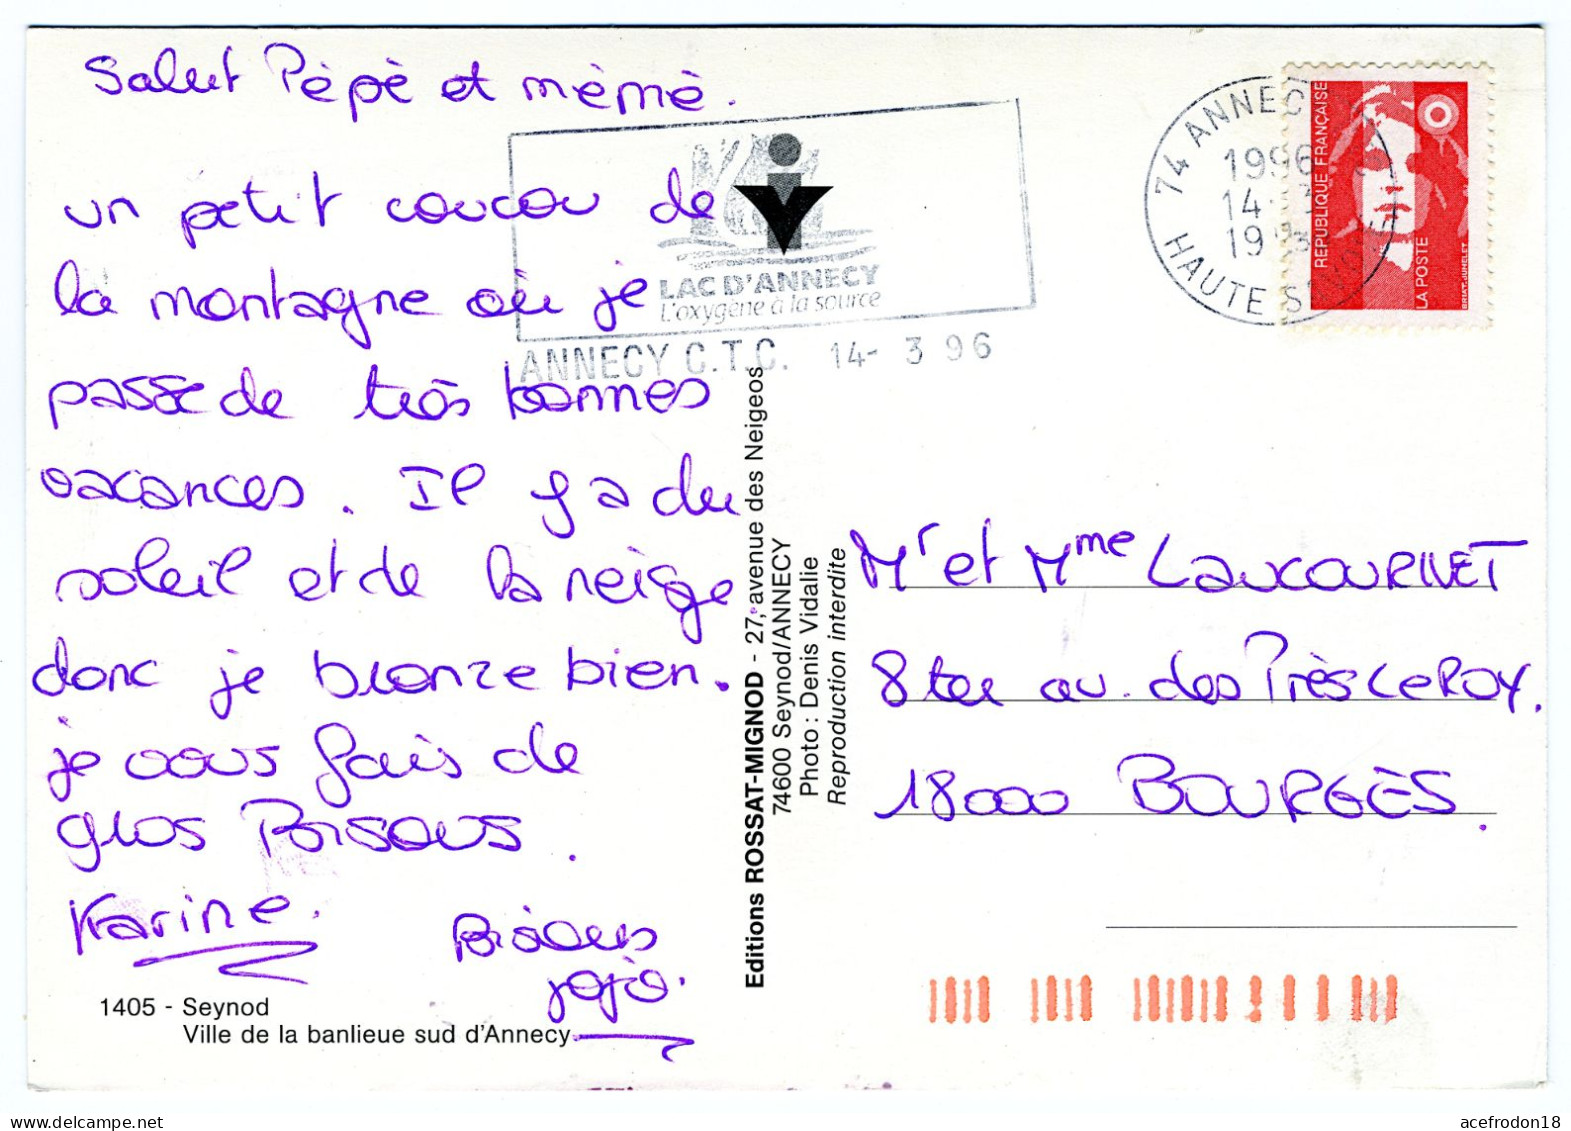 Salut Pépé et mémé.
un petit coucou de
la montagne où je
passe de très bonnes
vacances. Il y a du
soleil et de la neige
donc je bronze bien.
je vous fais de
gros Bisous.
Karine.
Bisous
jojo.
1405 - Seynod
Ville de la banlieue sud d'Annecy
LAC D'ANNECY
L'oxygène à la source
ANNECY C.T.C. 14- 3 96
Editions ROSSAT-MIGNOD - 27, avenue des Neigeos
74600 Seynod/ANNECY
Photo : Denis Vidalie
Reproduction interdite
74 ANNECY
1996
14 - 3
19
HAUTE
REPUBLIQUE FRANÇAISE
LA POSTE
BRIAT-JUMELET
Mr et Mme LAUCOURNET
8 ter av. des Près Le ROY.
18000 BOURGES.
acefrodon18